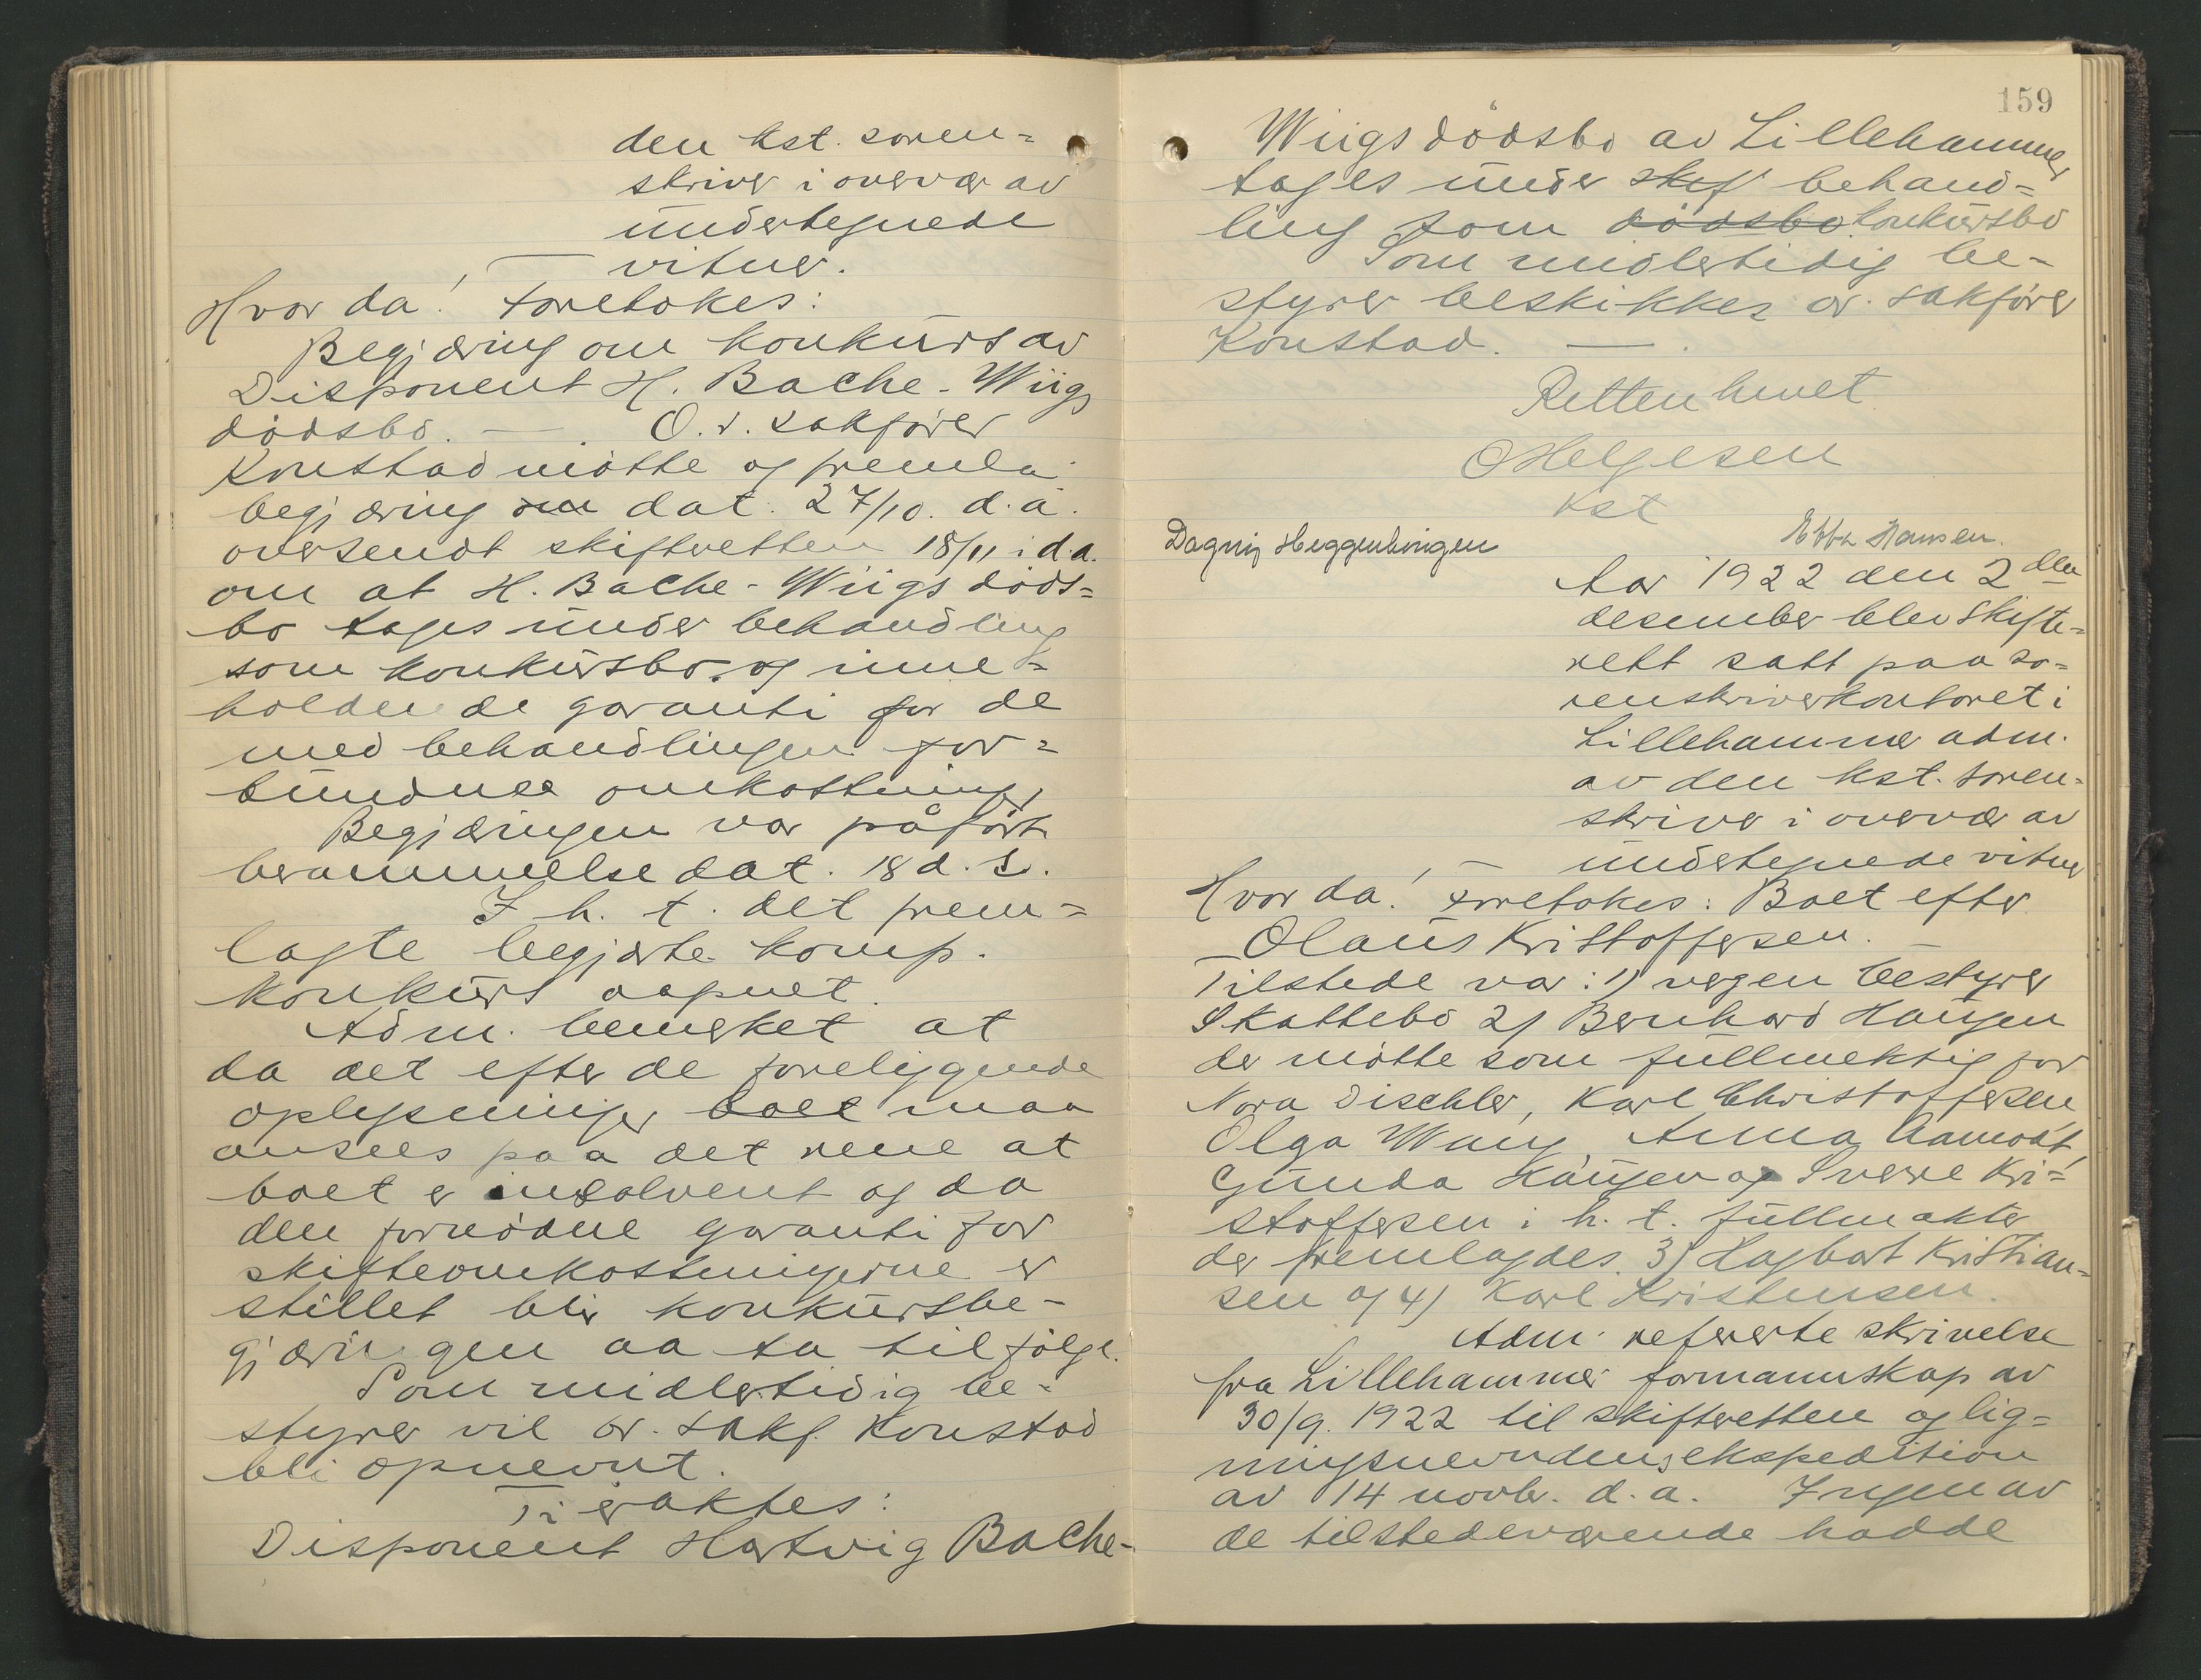 den kst. soren=
skriver i overvær av
undertegnede
vitner.
Hvor da! foretokes:
Begjæring om konkurs av
Disponent H. Bache-Wiigs
dödsbo. — . O.r. sakfører
Konstad mötte og fremla
begjæring om dat. 27/10. d.å.
oversendt skifteretten 18/11 i d.a.
om at H. Bache-Wiigs döds=
bo tages under behandling
som konkursbo og inne=
holdende garanti for de
med behandlingen for=
bundne omkostninger
Begjæringen var påført
berammelse dat. 18 d. s.
I h. t. det frem=
lagte begjærte komp.
konkurs aapnet.
Adm. bemerket at
da det efter de foreliggende
oplysninger boet maa
ansees paa det rene at
boet er insolvent og da
den fornödne garanti for
skifteomkostningerne er
stillet blir konkursbe-
gjæringen aa ta til fölge.
Som midlertidig be-
styrer vil or. sakf. Konstad
bli opnevnt.
Ti eraktes:
Disponent Hartvig Bache-
159
Wiigs dödsbo av Lillehammer
tages under skif behand=
ling som dödsbo konkursbo
Som midlertidig be-
styrer beskikkes or. sakförer
Konstad. — .
Retten hevet
O Helgesen
kst
Dagny Heggenhougen
Ebba Hansen.
Aar 1922 den 2den
desember blev skifte=
rett satt paa so=
renskriverkontoret i
Lillehammer adm.
av den kst. soren=
skriver i overvær av
undertegnede vitner
Hvor da! foretokes: Boet efter
Olaus Kristoffersen. —
Tilstede var: 1) vergen bestyrer
Skattebo 2) Bernhard Haugen
der mötte som fullmektig for
Nora Dischler, Karl Christoffersen,
Olga Wang, Anna Aamodt,
Gunda Haugen og Sverre Kri=
stoffersen i h. t. fullmakter
der fremlagdes. 3) Hagbart Kristian=
sen og 4) Karl Kristensen.
Adm. refererte skrivelse
fra Lillehammer formannskap av
30/9. 1922 til skifteretten og lig=
ningsnevndens ekspedition
av 14 novbr. d.a. Ingen av
de tilstedeværende hadde